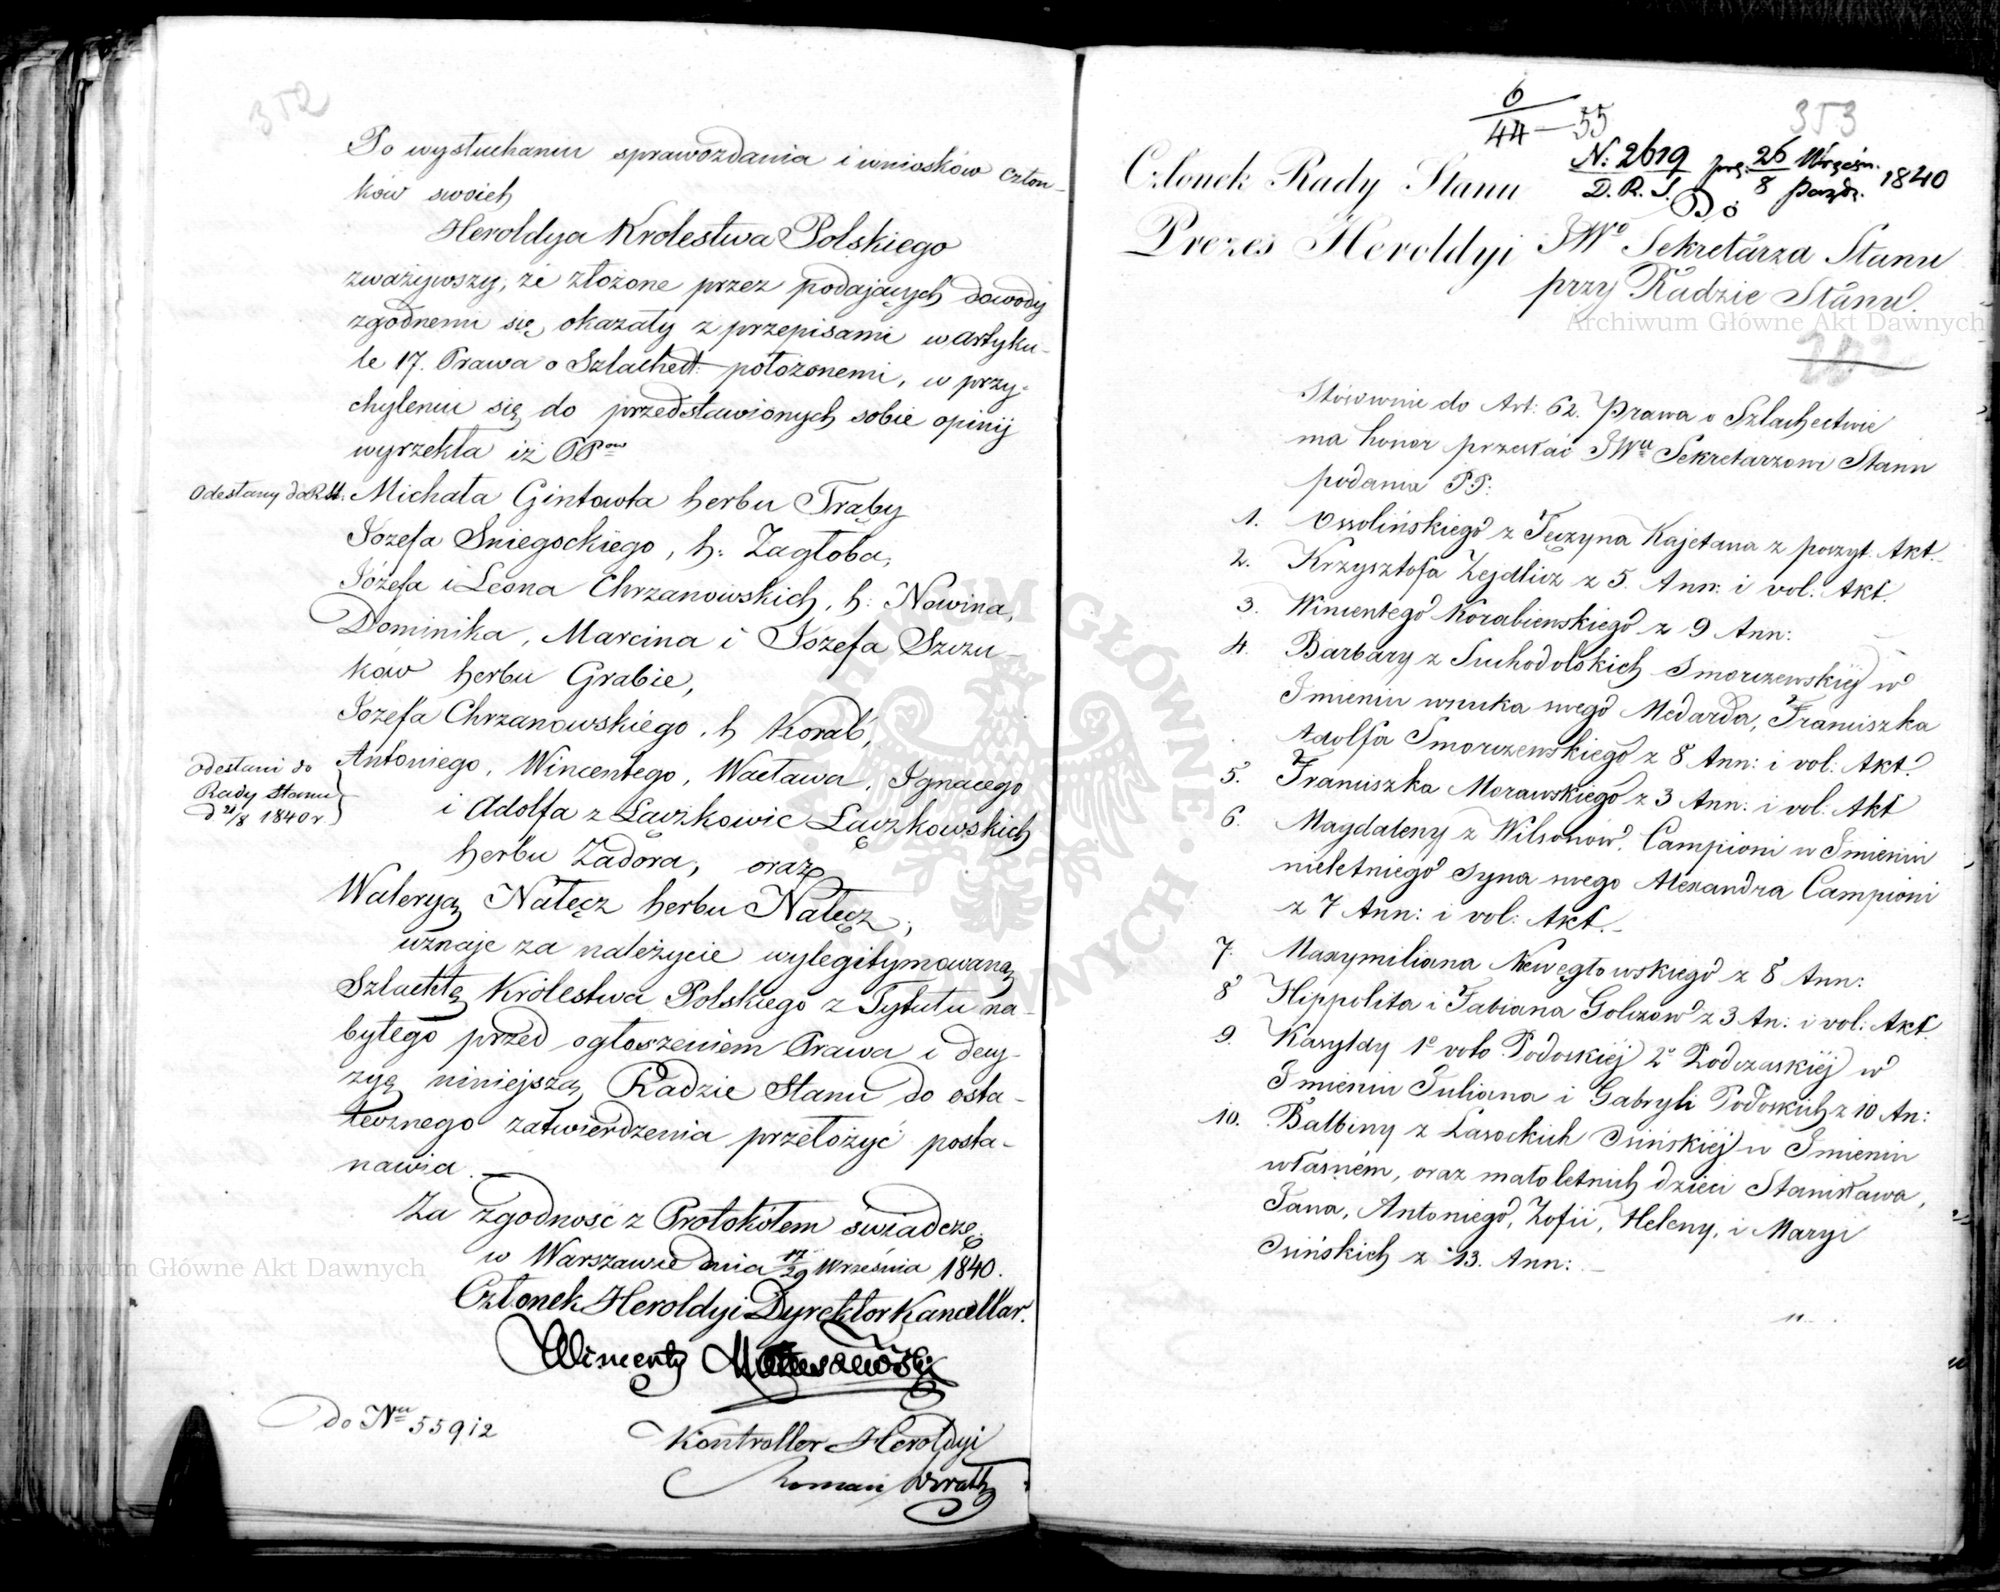 352
Po wysłuchaniu sprawozdania i wniosków Człon-
ków swoich
Heroldya Krolestwa Polskiego
zważywszy, że złożone przez podających dowody
zgodnemi się okazały z przepisami w artyku-
le 17. Prawa o Szlachect: położonemi, w przy-
chyleniu się do przedstawionych sobie opinij
wyrzekła iż PPow
Odesłany do R. St. Michała Gintowta herbu Trąby
Józefa Sniegockiego, h: Zagłoba,
Józefa i Leona Chrzanowskich, h: Nowina,
Dominika, Marcina i Józefa Szczu-
ków herbu Grabie,
Józefa Chrzanowskiego, h Korab,
Antoniego, Wincentego, Wacława, Ignacego
i Adolfa z Łączkowic Łączkowskich
herbu Zadora, oraz
Odesłani do
Rady Stanu
d 21/8 1840 r.
Waleryą Nałęcz herbu Nałęcz,
uznaje za należycie wylegitymowaną
Szlachtę Królestwa Polskiego z Tytułu na-
bytego przed ogłoszeniem Prawa i decy-
zyę niniejszą Radzie Stanu do osta-
tecznego zatwierdzenia przełożyć posta-
nawia.
Za zgodność z Protokółem świadczę
w Warszawie dnia 17/29 Września 1840.
Członek Heroldyi Dyrektor Kancellar.
Wincenty
Kontroller Heroldyi
Roman
Do Nru 559 i 2
353
6/44 — 55
N: 2619 prz: 26 Wrześn. 1840
D. R. S. 8 Paźdz.
Członek Rady Stanu
Prezes Heroldyi
Do
JWo Sekretarza Stanu
przy Radzie Stanu.
Stósownie do Art: 62. Prawa o Szlachectwie
ma honor przesłać JWu Sekretarzowi Stanu
podania PP:
1. Ossolińskiego z Tęczyna Kajetana z poszyt. Akt.
2. Krzysztofa Zejdlicz z 5. Ann: i vol: Akt.
3. Wincentego Korabiewskiego z 9 Ann:
4. Barbary z Suchodolskich Smorczewskiéj w
Imieniu wnuka swego Medarda, Franciszka
Adolfa Smorczewskiego z 8 Ann: i vol: Akt.
5. Franciszka Morawskiego z 3 Ann: i vol: Akt
6. Magdaleny z Wilsonów Campioni w Imieniu
nieletniego Syna swego Alexandra Campioni
z 7 Ann: i vol: Akt.
7. Maxymiliana Niewęgłowskiego z 8 Ann:
8 Hippolita i Fabiana Golczów z 3 An: i vol: Akt.
9. Kasyldy 1o voto Podoskiéj 2o Podczaskiéj w
Imieniu Juliana i Gabryli Podoskich z 10 An:
10. Balbiny z Lasockich Osińskiéj w Imieniu
własném, oraz małoletnich dzieci Stanisława,
Jana, Antoniego, Zofii, Heleny, i Maryi
Osińskich z 13. Ann:
Archiwum Główne Akt Dawnych
Archiwum Główne Akt Dawnych
ARCHIWUM GŁÓWNE AKT DAWNYCH